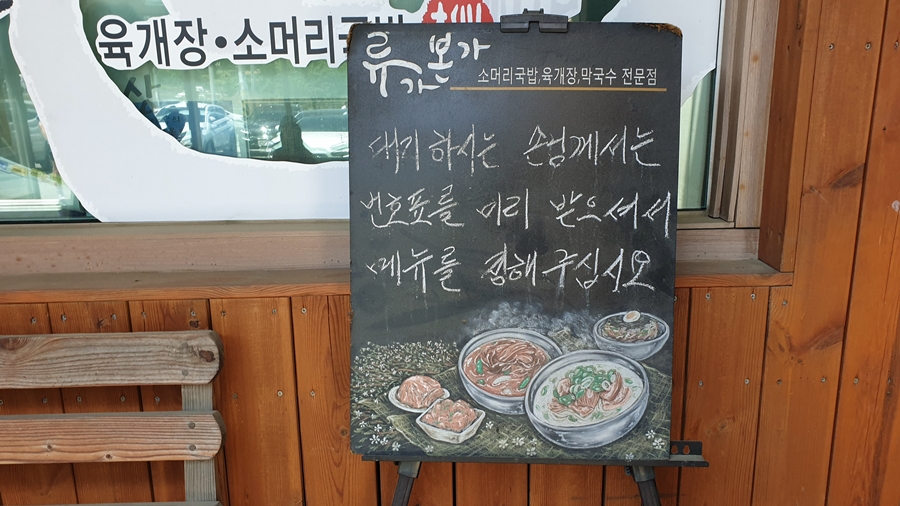 육개장·소머리국밥
류가본가
소머리국밥,육개장,막국수 전문점
대기 하시는 손님께서는
번호표를 미리 받으셔서
메뉴를 정해 주십시오